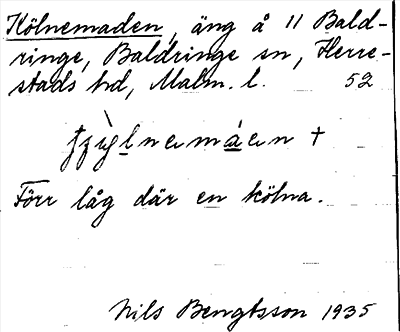 Kölnemaden, äng å 11 Bald-
ringe, Baldringe sn, Herre-
stads hd, Malm. l. 52
Förr låg där en kölna.
Nils Bengtsson 1935